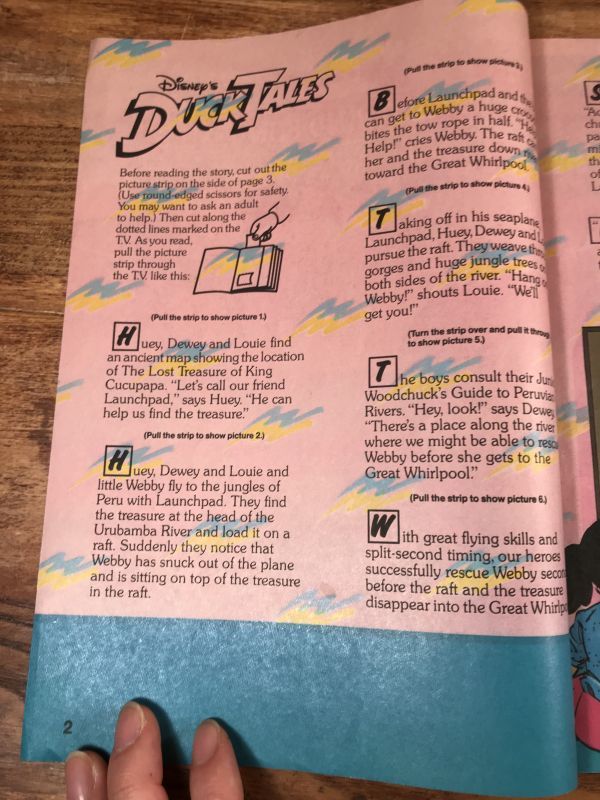 Disney's
DUCKTALES
Before reading the story, cut out the
picture strip on the side of page 3.
(Use round-edged scissors for safety.
You may want to ask an adult
to help.) Then cut along the
dotted lines marked on the
T.V. As you read,
pull the picture
strip through
the T.V. like this:
(Pull the strip to show picture 1.)
Huey, Dewey and Louie find
an ancient map showing the location
of The Lost Treasure of King
Cucupapa. “Let's call our friend
Launchpad,” says Huey. “He can
help us find the treasure.”
(Pull the strip to show picture 2.)
Huey, Dewey and Louie and
little Webby fly to the jungles of
Peru with Launchpad. They find
the treasure at the head of the
Urubamba River and load it on a
raft. Suddenly they notice that
Webby has snuck out of the plane
and is sitting on top of the treasure
in the raft.
(Pull the strip to show picture 3.)
Before Launchpad and the
can get to Webby a huge
bites the tow rope in half.
Help!” cries Webby. The raft
her and the treasure down
toward the Great Whirlpool.
(Pull the strip to show picture 4.)
Taking off in his seaplane,
Launchpad, Huey, Dewey and
pursue the raft. They weave
gorges and huge jungle trees
both sides of the river. “Hang
Webby!” shouts Louie. “We'll
get you!”
(Turn the strip over and pull it
to show picture 5.)
The boys consult their
Woodchuck's Guide to Peruvian
Rivers. “Hey, look!” says Dewey.
“There's a place along the river
where we might be able to
Webby before she gets to the
Great Whirlpool.”
(Pull the strip to show picture 6.)
With great flying skills and
split-second timing, our heroes
successfully rescue Webby
before the raft and the treasure
disappear into the Great
2